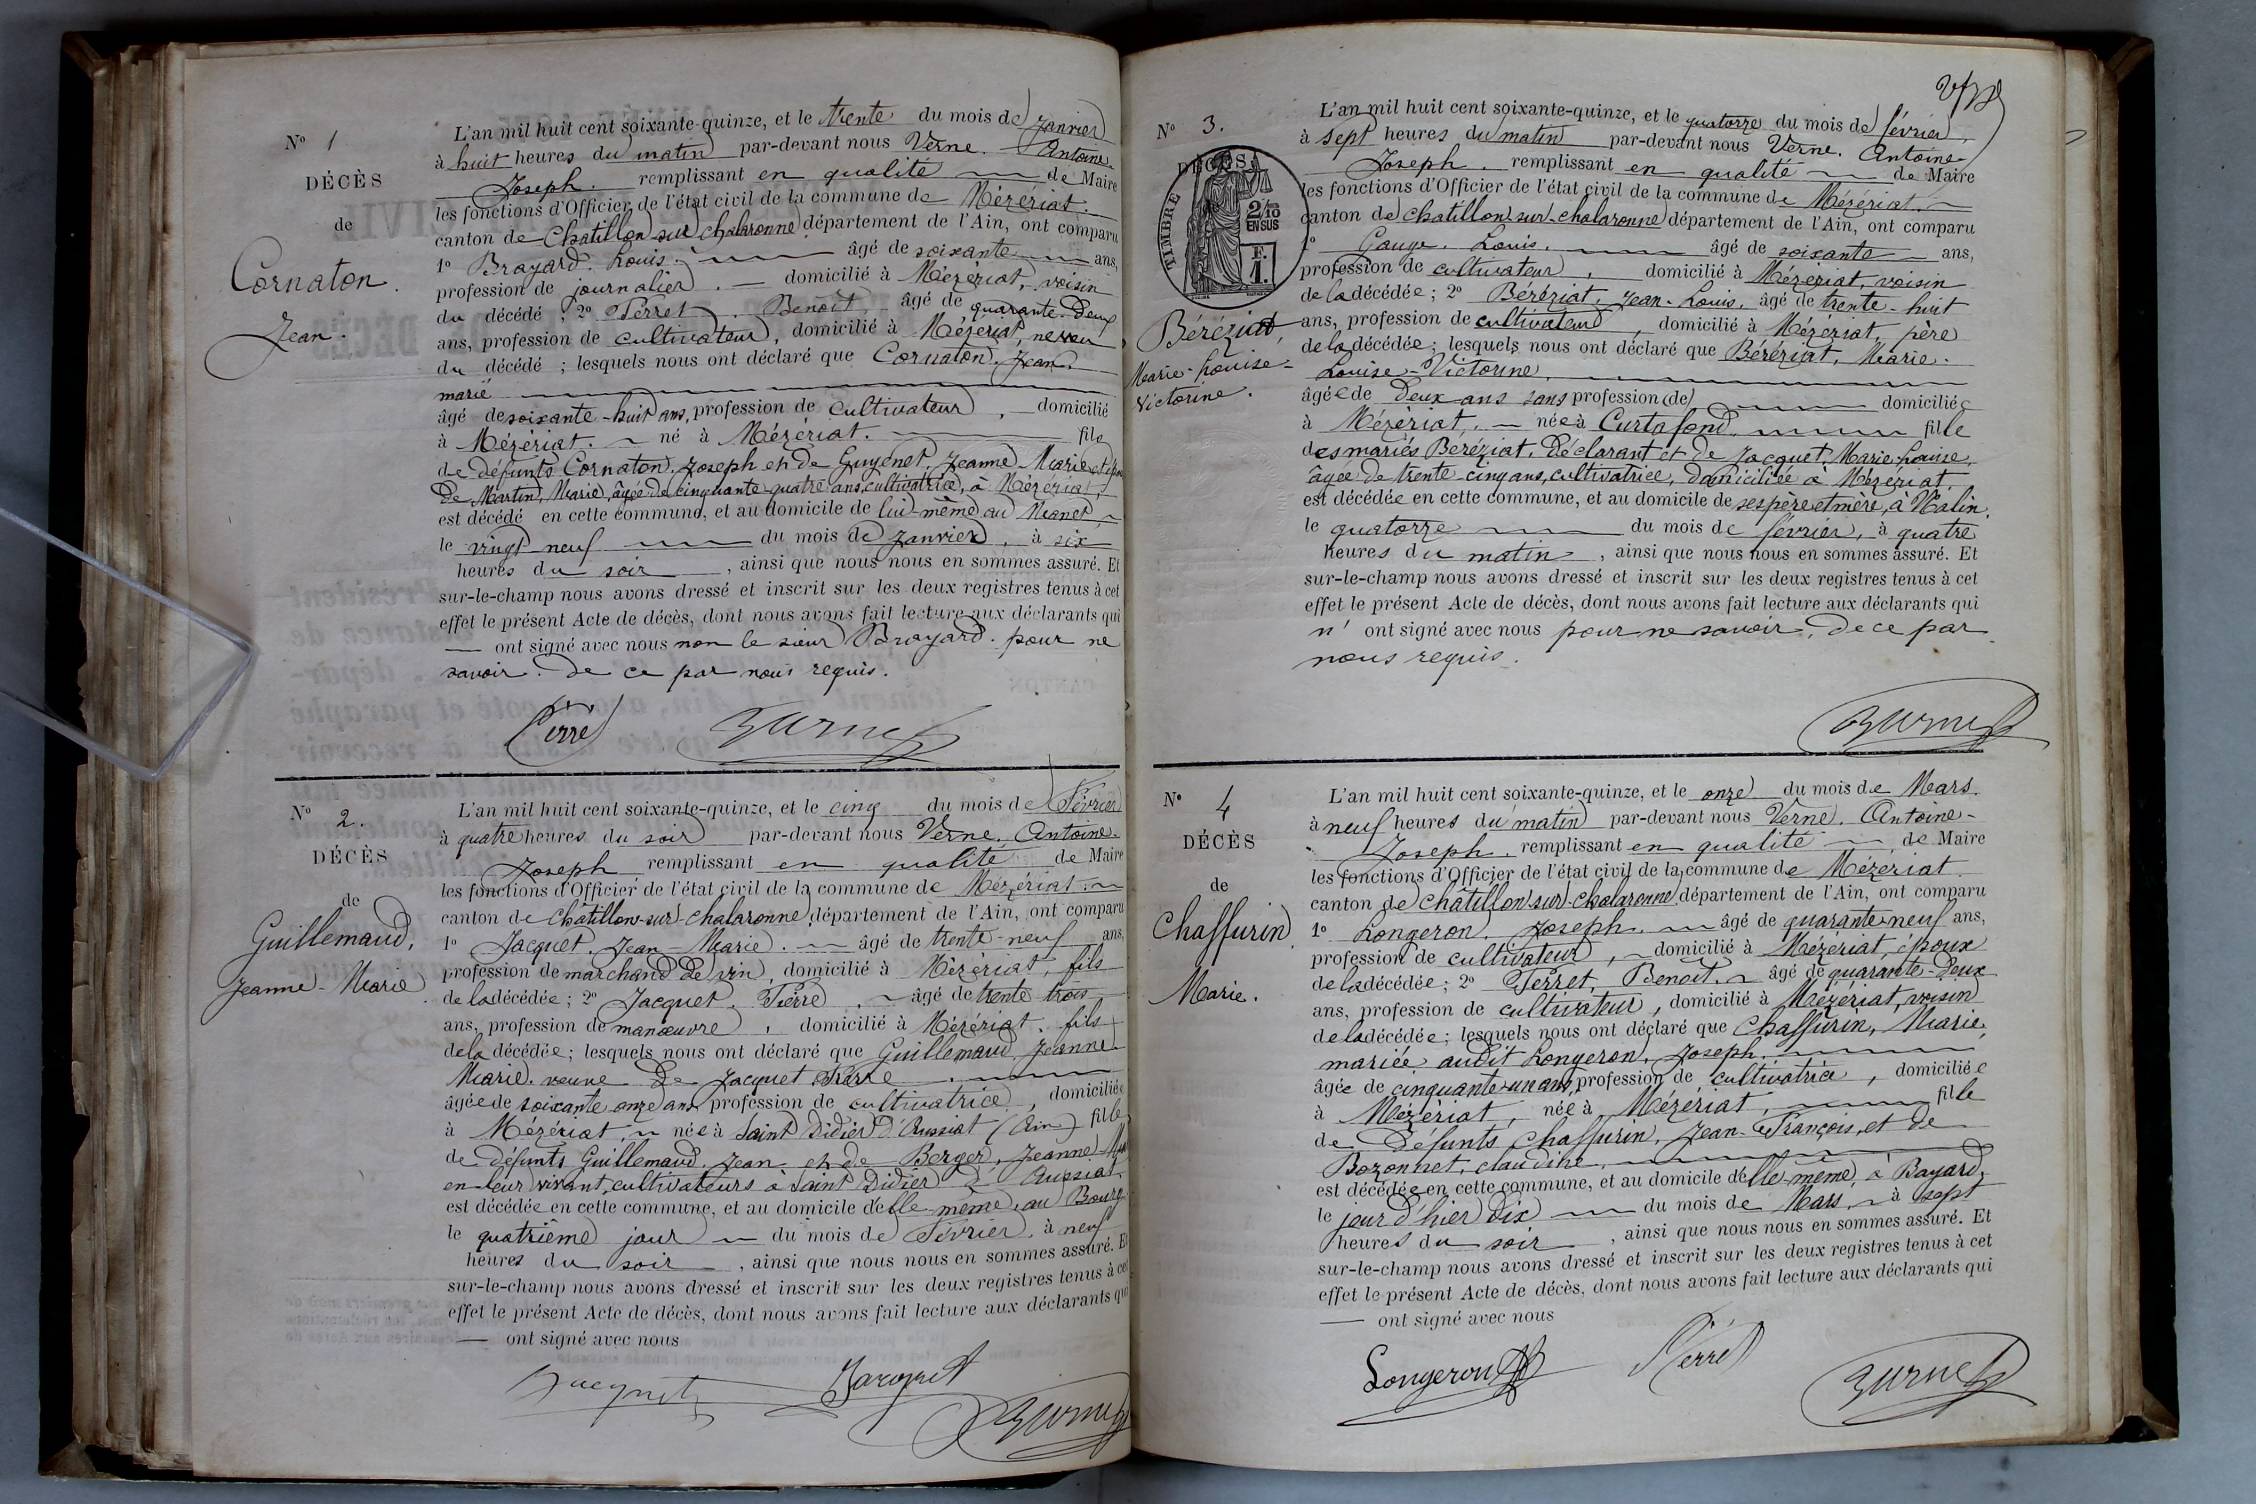 N° 1
DÉCÈS
de
Cornaton.
Jean.
L'an mil huit cent soixante-quinze, et le trente du mois de janvier
à huit heures du matin par-devant nous Verne. Antoine.
Joseph. remplissant en qualité de Maire
les fonctions d'Officier de l'état civil de la commune de Mézériat.
canton de Chatillon sur chalaronne département de l'Ain, ont comparu
1° Brayard. Louis. âgé de soixante ans,
profession de journalier. domicilié à Mézériat, voisin
du décédé ; 2° Perret. Benoit. âgé de quarante-deux
ans, profession de cultivateur, domicilié à Mézériat, neveu
du décédé ; lesquels nous ont déclaré que Cornaton. Jean.
marié
âgé de soixante-huit ans, profession de cultivateur, domicilié
à Mézériat. né à Mézériat. fils
de défunts Cornaton. Joseph et de Guyenet. Jeanne-Marie
de Martin, Marie, âgée de cinquante-quatre ans, cultivatrice, à Mézériat,
est décédé en cette commune, et au domicile de lui-même au Manet
le vingt neuf du mois de janvier, à six
heures du soir, ainsi que nous nous en sommes assuré. Et
sur-le-champ nous avons dressé et inscrit sur les deux registres tenus à cet
effet le présent Acte de décès, dont nous avons fait lecture aux déclarants qui
ont signé avec nous non le sieur Brayard. pour ne
savoir. de ce par nous requis.
Perret Verne
N° 2.
DÉCÈS
de
Guillemaud,
Jeanne-Marie
L'an mil huit cent soixante-quinze, et le cinq du mois de Février
à quatre heures du soir par-devant nous Verne. Antoine.
Joseph remplissant en qualité de Maire
les fonctions d'Officier de l'état civil de la commune de Mézériat.
canton de Chatillon-sur-chalaronne département de l'Ain, ont comparu
1° Jacquet. Jean-Marie. âgé de trente-neuf ans,
profession de marchand de vin, domicilié à Mézériat, fils
de la décédée ; 2° Jacquet. Pierre. âgé de trente trois
ans, profession de manœuvre, domicilié à Mézériat. fils
de la décédée ; lesquels nous ont déclaré que Guillemaud Jeanne-
Marie. veuve de Jacquet Pierre.
âgée de soixante onze ans profession de cultivatrice, domiciliée
à Mézériat, née à Saint Didier d'Aussiat (Ain) fille
de défunts Guillemaud. Jean. et de Berger, Jeanne
en leur vivant, cultivateurs à Saint Didier d'Aussiat.
est décédée en cette commune, et au domicile d'elle-même, au Bourg
le quatrième jour du mois de Février. à neuf
heures du soir, ainsi que nous nous en sommes assuré. Et
sur-le-champ nous avons dressé et inscrit sur les deux registres tenus à cet
effet le présent Acte de décès, dont nous avons fait lecture aux déclarants qui
ont signé avec nous
Jacquet Jacquet Verne
N° 3.
DÉCÈS
TIMBRE
2/10
EN SUS
F.
1.
Béréziat,
Marie-Louise-
Victorine.
L'an mil huit cent soixante-quinze, et le quatorze du mois de février,
à sept heures du matin par-devant nous Verne. Antoine
Joseph. remplissant en qualité de Maire
les fonctions d'Officier de l'état civil de la commune de Mézériat.
canton de chatillon-sur-chalaronne département de l'Ain, ont comparu
1° Gauge. Louis. âgé de soixante ans,
profession de cultivateur, domicilié à Mézériat, voisin
de la décédée ; 2° Béréziat, Jean-Louis, âgé de trente-huit
ans, profession de cultivateur, domicilié à Mézériat, père
de la décédée ; lesquels nous ont déclaré que Béréziat, Marie.
Louise-Victorine.
âgée de deux ans sans profession (de) domiciliée
à Mézériat, née à Curtafond fille
des mariés Béréziat, Déclarant et de Jacquet, Marie-Louise,
âgée de trente cinq ans, cultivatrice, domiciliée à Mézériat.
est décédée en cette commune, et au domicile de ses père et mère, à Malin.
le quatorze du mois de février, à quatre
heures du matin, ainsi que nous nous en sommes assuré. Et
sur-le-champ nous avons dressé et inscrit sur les deux registres tenus à cet
effet le présent Acte de décès, dont nous avons fait lecture aux déclarants qui
n' ont signé avec nous pour ne savoir, de ce par
nous requis.
Verne
N° 4
DÉCÈS
de
Chaffurin
Marie.
L'an mil huit cent soixante-quinze, et le onze du mois de Mars.
à neuf heures du matin par-devant nous Verne. Antoine-
Joseph. remplissant en qualité de Maire
les fonctions d'Officier de l'état civil de la commune de Mézériat
canton de Châtillon-sur-chalaronne département de l'Ain, ont comparu
1° Longeron. Joseph. âgé de quarante-neuf ans,
profession de cultivateur, domicilié à Mézériat, époux
de la décédée ; 2° Perret, Benoit. âgé de quarante-deux
ans, profession de cultivateur, domicilié à Mézériat, voisin
de la décédée ; lesquels nous ont déclaré que Chaffurin, Marie,
mariée audit Longeron. Joseph.
âgée de cinquante-un ans, profession de cultivatrice, domiciliée
à Mézériat, née à Mézériat, fille
de défunts Chaffurin, Jean-François, et de
Bozonnet, claudine,
est décédée en cette commune, et au domicile d'elle même, à Bayard,
le jour d'hier dix du mois de Mars, à sept
heures du soir, ainsi que nous nous en sommes assuré. Et
sur-le-champ nous avons dressé et inscrit sur les deux registres tenus à cet
effet le présent Acte de décès, dont nous avons fait lecture aux déclarants qui
ont signé avec nous
Longeron Perret Verne